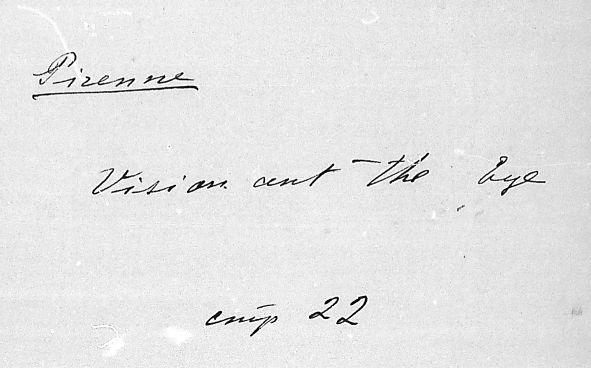 Pirenne
Vision ant the Eye
стр 22